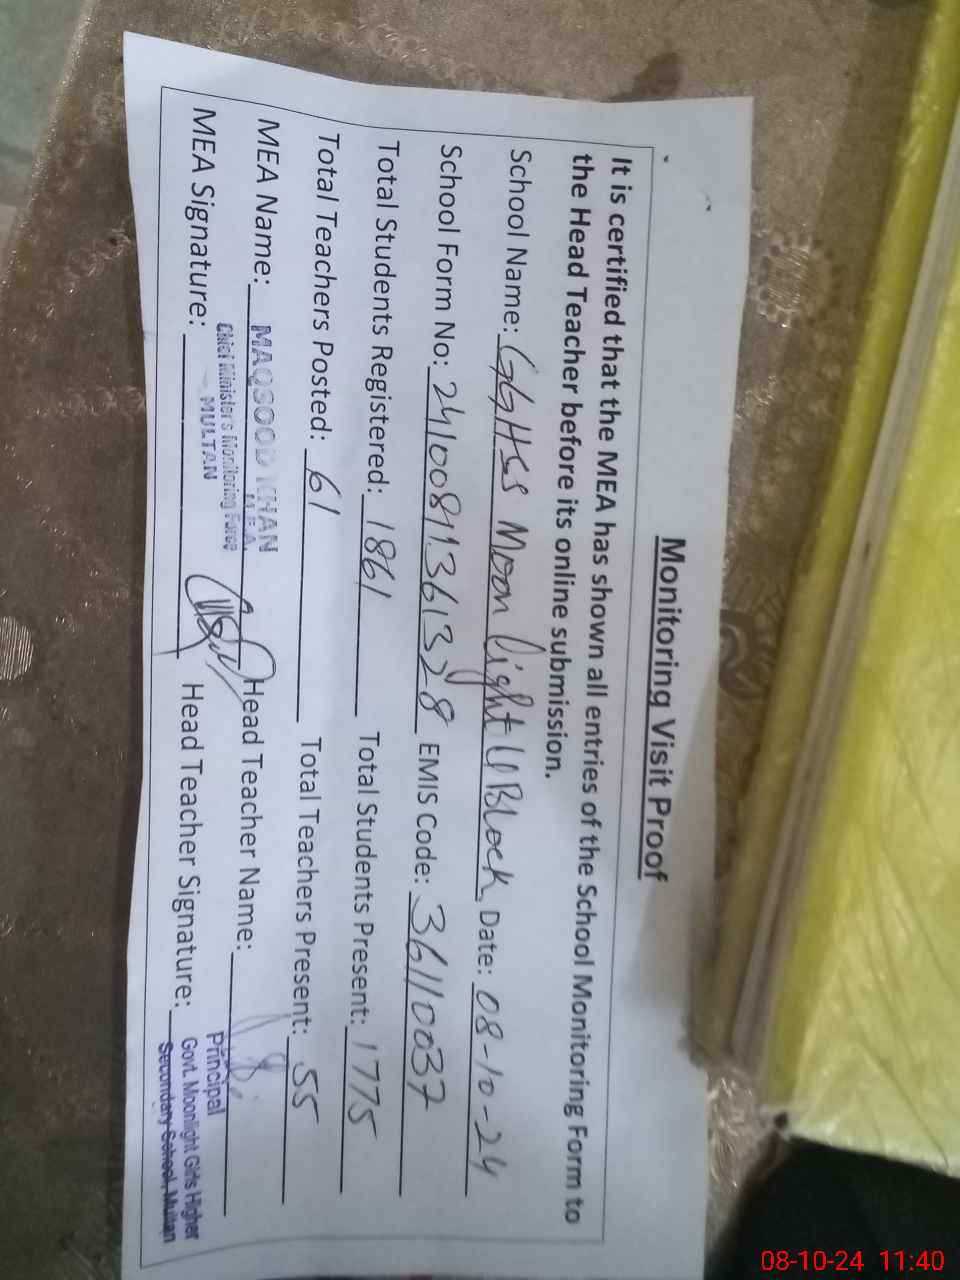 Monitoring Visit Proof
It is certified that the MEA has shown all entries of the School Monitoring Form to
the Head Teacher before its online submission.
School Name: GGHSS Moon light U Block Date: 08-10-24
School Form No: 24100811361328 EMIS Code: 36110037
Total Students Registered: 1861 Total Students Present: 1775
Total Teachers Posted: 61 Total Teachers Present: 55
MEA Name: MAQSOOD KHAN Head Teacher Name:
M.E.A.
Chief Minister's Monitoring Force
MULTAN
MEA Signature: Head Teacher Signature:
Principal
Govt. Moonlight Girls Higher
Secondary School, Multan
08-10-24 11:40